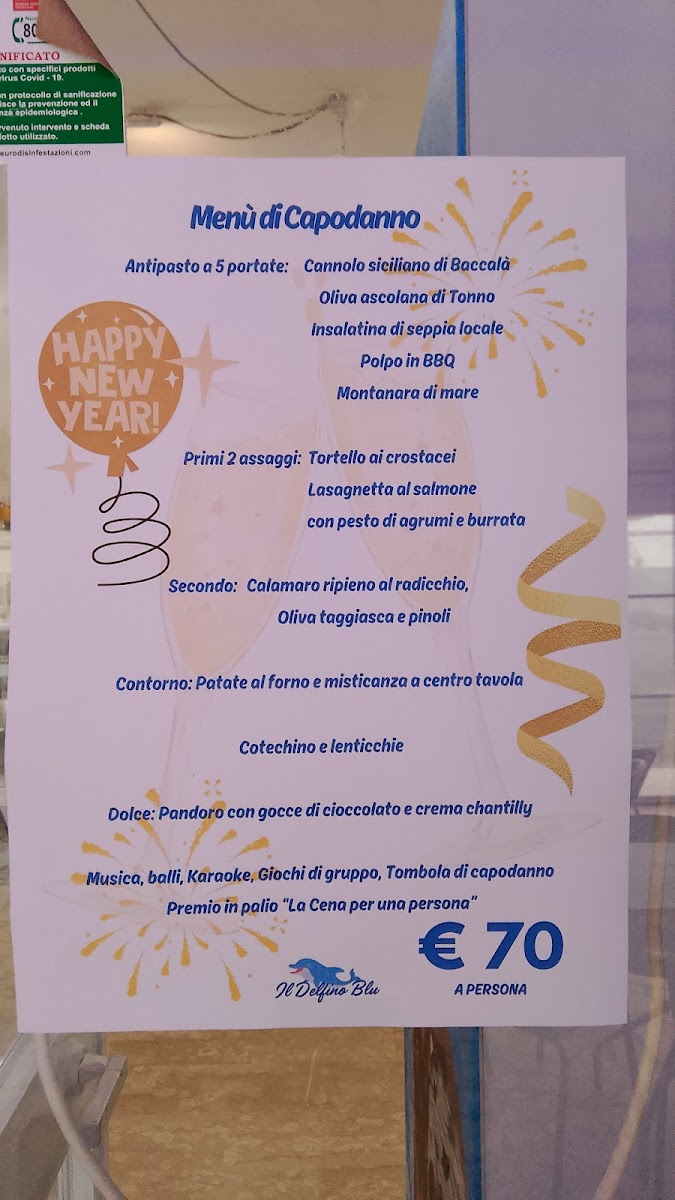 80
NIFICATO
to con specifici prodotti
virus Covid - 19.
n protocollo di sanificazione
isce la prevenzione ed il
nza epidemiologica .
vvenuto intervento e scheda
dotto utilizzato.
eurodisinfestazioni.com
Menù di Capodanno
Antipasto a 5 portate: Cannolo siciliano di Baccalà
Oliva ascolana di Tonno
Insalatina di seppia locale
Polpo in BBQ
Montanara di mare
HAPPY
NEW
YEAR!
Primi 2 assaggi: Tortello ai crostacei
Lasagnetta al salmone
con pesto di agrumi e burrata
Secondo: Calamaro ripieno al radicchio,
Oliva taggiasca e pinoli
Contorno: Patate al forno e misticanza a centro tavola
Cotechino e lenticchie
Dolce: Pandoro con gocce di cioccolato e crema chantilly
Musica, balli, Karaoke, Giochi di gruppo, Tombola di capodanno
Premio in palio “La Cena per una persona”
€ 70
A PERSONA
Il Delfino Blu